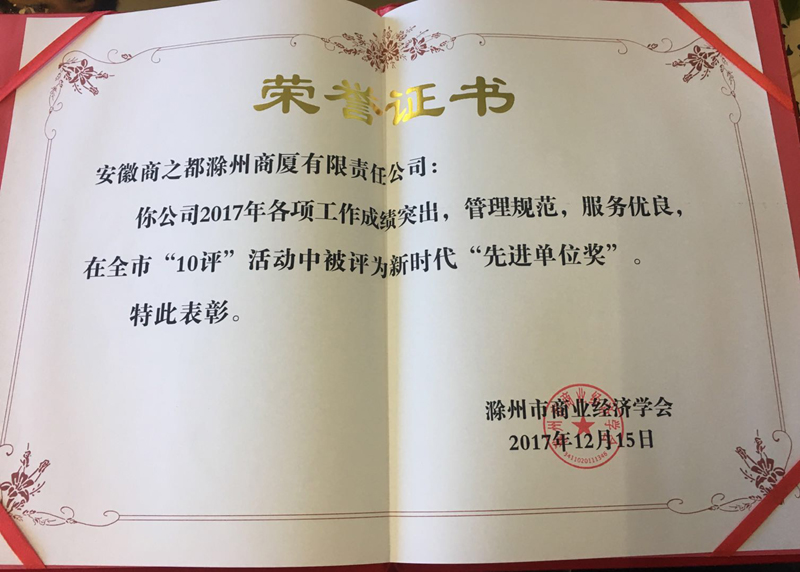 荣誉证书
安徽商之都滁州商厦有限责任公司：
你公司2017年各项工作成绩突出，管理规范，服务优良，
在全市“10评”活动中被评为新时代“先进单位奖”。
特此表彰。
滁州市商业经济学会
2017年12月15日